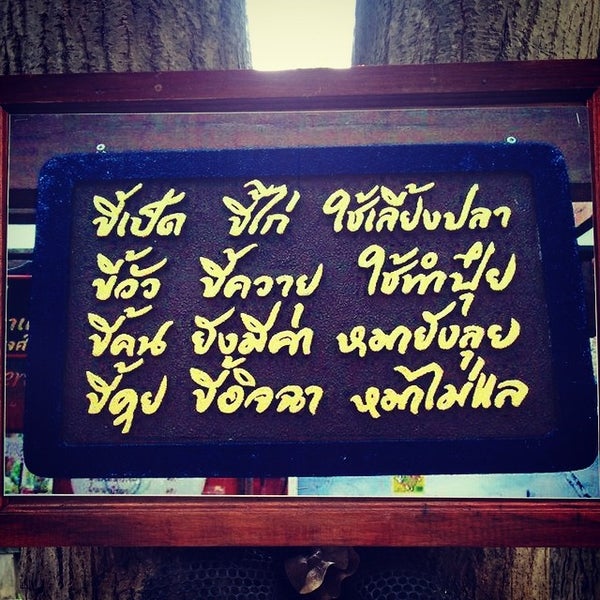 ขี้เป็ด ขี้ไก่ ใช้เลี้ยงปลา
ขี้วัว ขี้ควาย ใช้ทำปุ๋ย
ขี้คน ยังมีค่า หมายังลุย
ขี้คุย ขี้อิจฉา หมาไม่แล